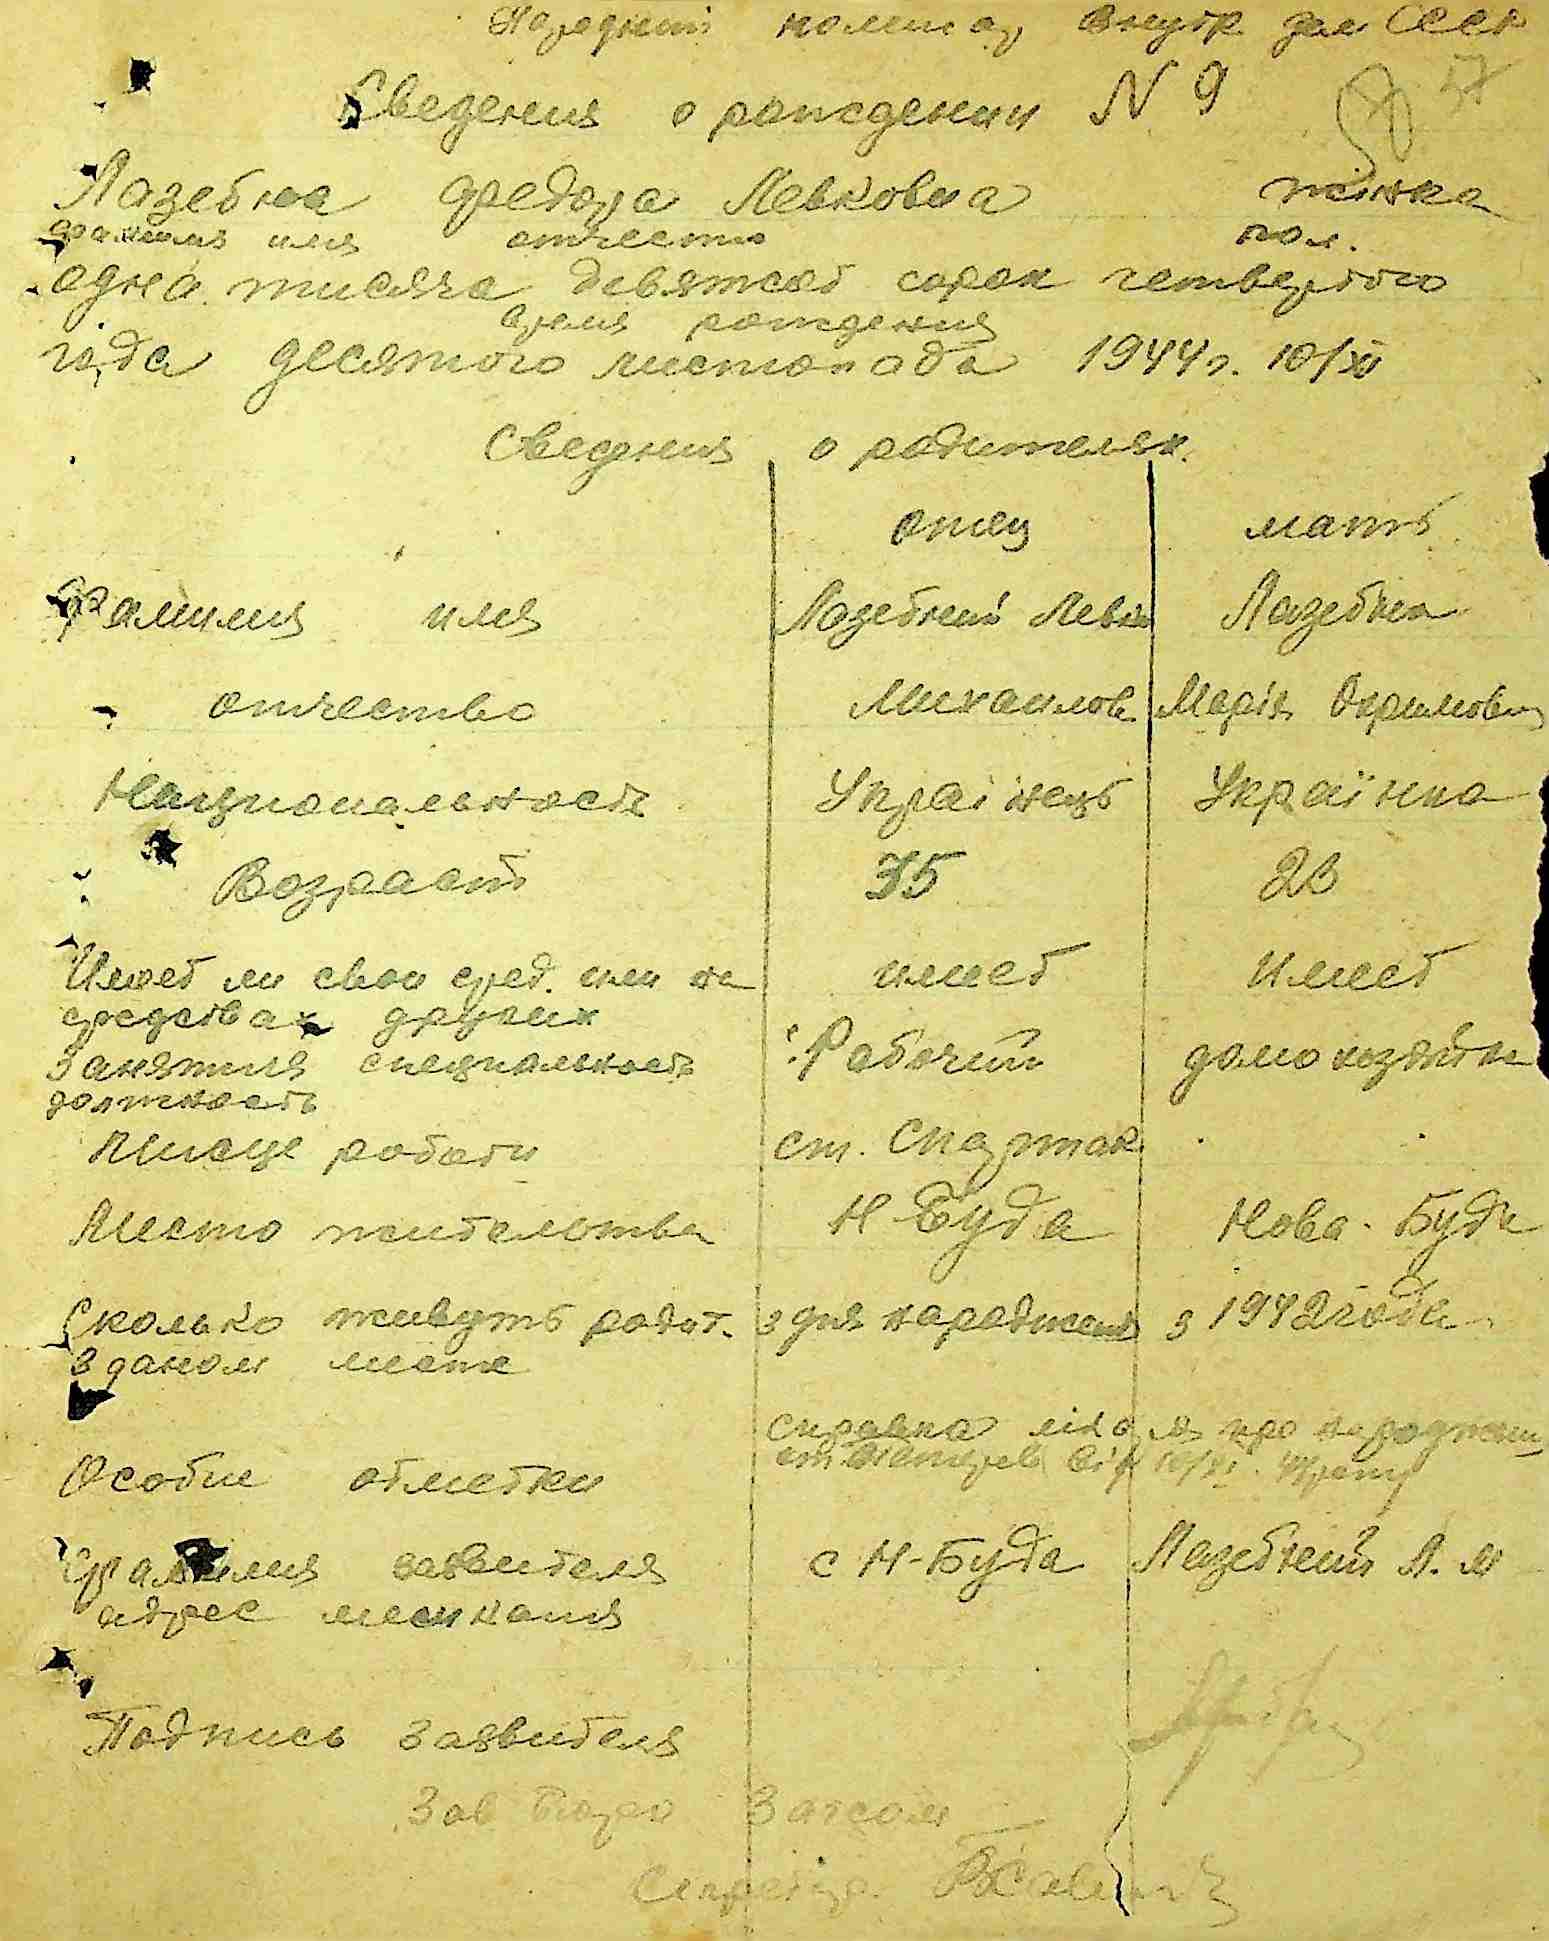 Народний комисар Внутр дел СССР
Сведения о рождении N 9
Лазебная Федора Левковна жинка
фамилия имя отчество пол.
одна тисяча девятсот сорок четвертого
время рождения
года десятого листопада 1944 г. 10/XI
Сведения о родителях.
отец мать
Фамилия имя Лазебний Левко Лазебна
отчество Михаилов. Марія Охримовна
Национальность Українець Українка
Возраст 35 23
Имеет ли свои сред. или на имеет имеет
средствах других
Занятия специальность Рабочий домохозяйка
должность
Мисце работи ст. Спартак
Место жительства Н Буда Нова-Буда
Сколько живуть родит. з дня народження з 1942 года
в даном месте
справка лікаря про народження
Особие отметки
Фамилия заявителя с Н-Буда Лазебний Л. М
адрес мешкания
Подпись заявителя
Зав Бюро Загсом
Секретар